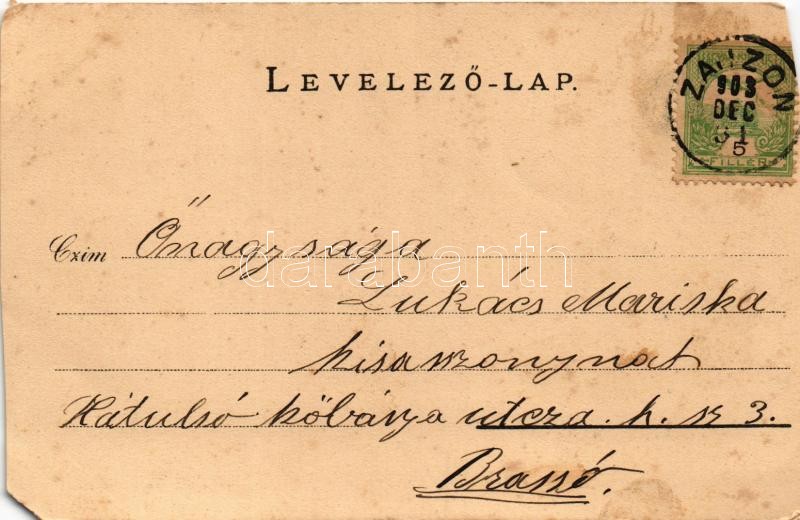 LEVELEZŐ-LAP.
ZAJZON
903
DEC
31
5
FILLÉR
Czim Őnagysága
darabanth
Lukács Mariska
kisasszonynak
Hátulsó kőbánya utcza. h. sz 3.
Brassó.